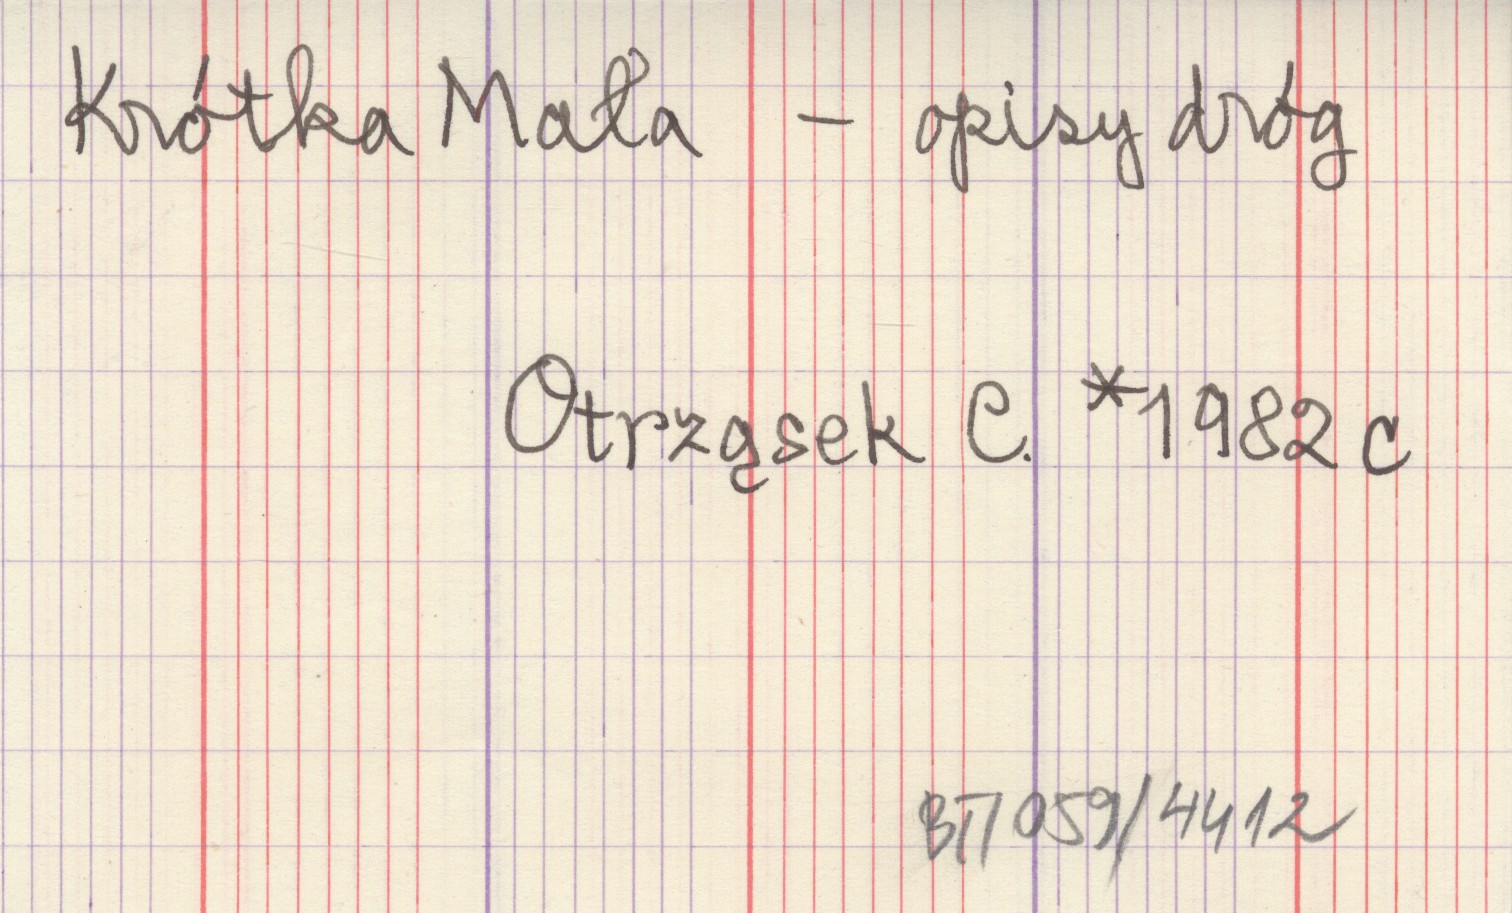 Krótka Mała – opisy dróg
Otrząsek C. *1982 c
BTI 059/4412